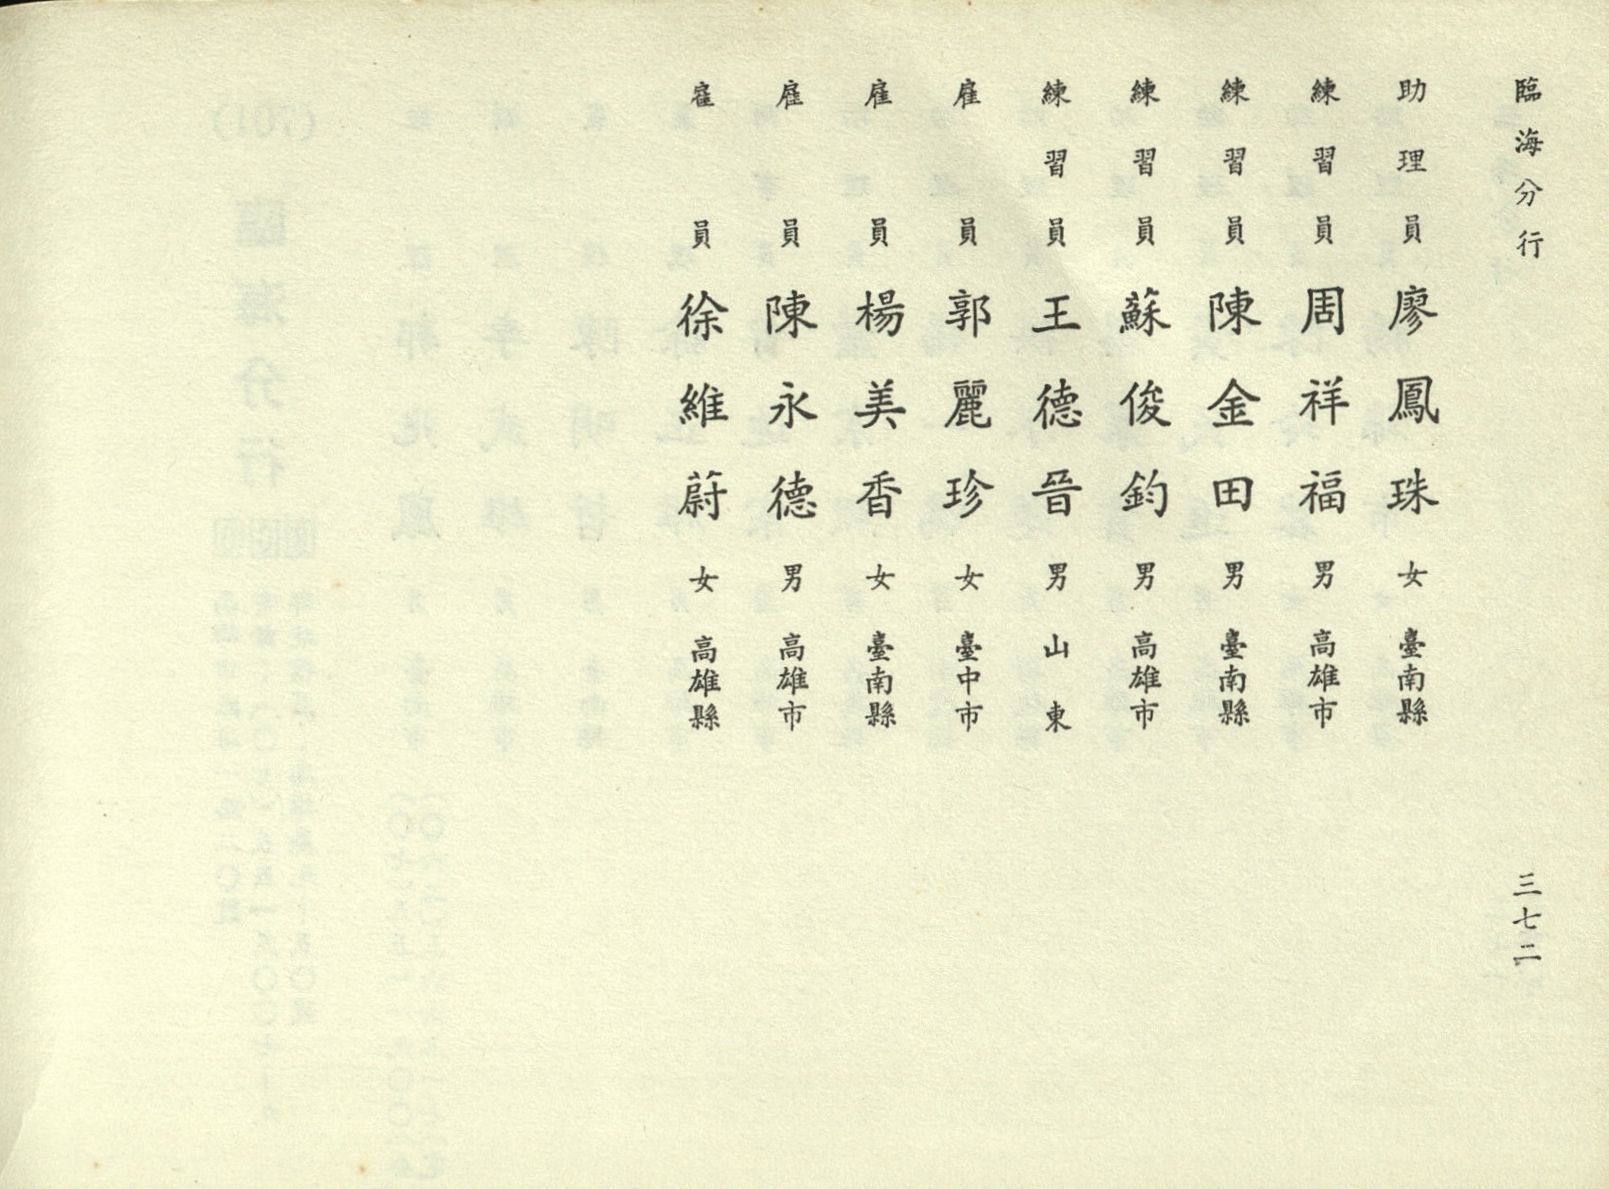 臨海分行
助理員 廖鳳珠 女 臺南縣
練習員 周祥福 男 高雄市
練習員 陳金田 男 臺南縣
練習員 蘇俊鈞 男 高雄市
練習員 王德晉 男 山東
雇員 郭麗珍 女 臺中市
雇員 楊美香 女 臺南縣
雇員 陳永德 男 高雄市
雇員 徐維蔚 女 高雄縣
三七二